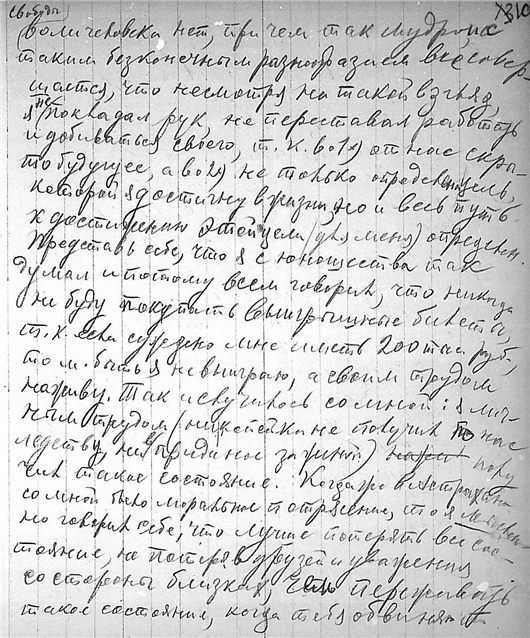 свободы
310
воли человека нет, при чем так мудро, и с
таким безконечным разнообразием все совер
шается, что несмотря на такой взгляд,
я не покладал рук, не переставал работать
и добиваться своего, т.к. во 1х) от нас скры-
то будущее, а во 2х) не только определена цель,
которой я достигну в жизни, но и весь путь
к достижению этой цели (для меня) определен.
Представь себе, что я с юношества так
думал и потому всем говорил, что никогда
не буду покупать выигрышные билеты,
т.к. если суждено мне иметь 200 тыс руб,
то м. быть я не выиграю, а своим трудом
наживу. Так и случилось со мной: я лич-
ным трудом (ни копейки не получил по нас
ледству, ни в приданое за женой) полу
чил такое состояние. Когда же
со мной было моральное потрясение, то я
но говорил себе, что лучше потерять все сос-
тояние, не потеряв друзей и уважения
со стороны близких, чем переживать
такое состояние, когда тебя обвиняют